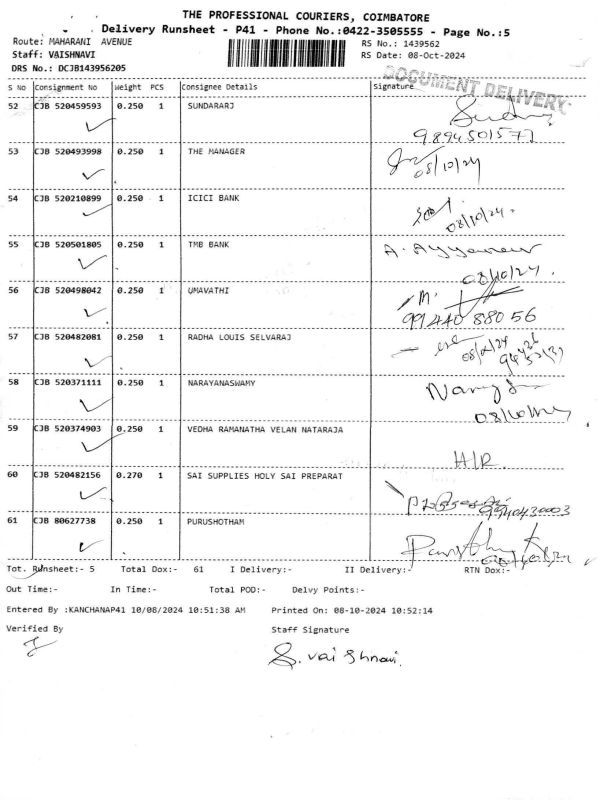 THE PROFESSIONAL COURIERS, COIMBATORE
Delivery Runsheet - P41 - Phone No.:0422-3505555 - Page No.:5
Route: MAHARANI AVENUE
RS No.: 1439562
Staff: VAISHNAVI
RS Date: 08-Oct-2024
DRS No.: DCJB143956205
DOCUMENT DELIVERY
S No Consignment No Weight PCS Consignee Details Signature
52 CJB 520459593 0.250 1 SUNDARARJ
9894501577
53 CJB 520493998 0.250 1 THE MANAGER
08/10/24
54 CJB 520210899 0.250 1 ICICI BANK
08/10/24.
55 CJB 520501805 0.250 1 TMB BANK
08/10/24.
56 CJB 520498042 0.250 1 UMAVATHI
M.
99440 88056
57 CJB 520482081 0.250 1 RADHA LOUIS SELVARAJ
58 CJB 520371111 0.250 1 NARAYANASWAMY
59 CJB 520374903 0.250 1 VEDHA RAMANATHA VELAN NATARAJA
H/R
60 CJB 520482156 0.270 1 SAI SUPPLIES HOLY SAI PREPARAT
9940430003
61 CJB 80627738 0.250 1 PURUSHOTHAM
Tot. Runsheet:- 5 Total Dox:- 61 I Delivery:- II Delivery:- RTN Dox:-
Out Time:- In Time:- Total POD:- Delvy Points:-
Entered By :KANCHANAP41 10/08/2024 10:51:38 AM Printed On: 08-10-2024 10:52:14
Verified By Staff Signature
S. Vaishnavi.